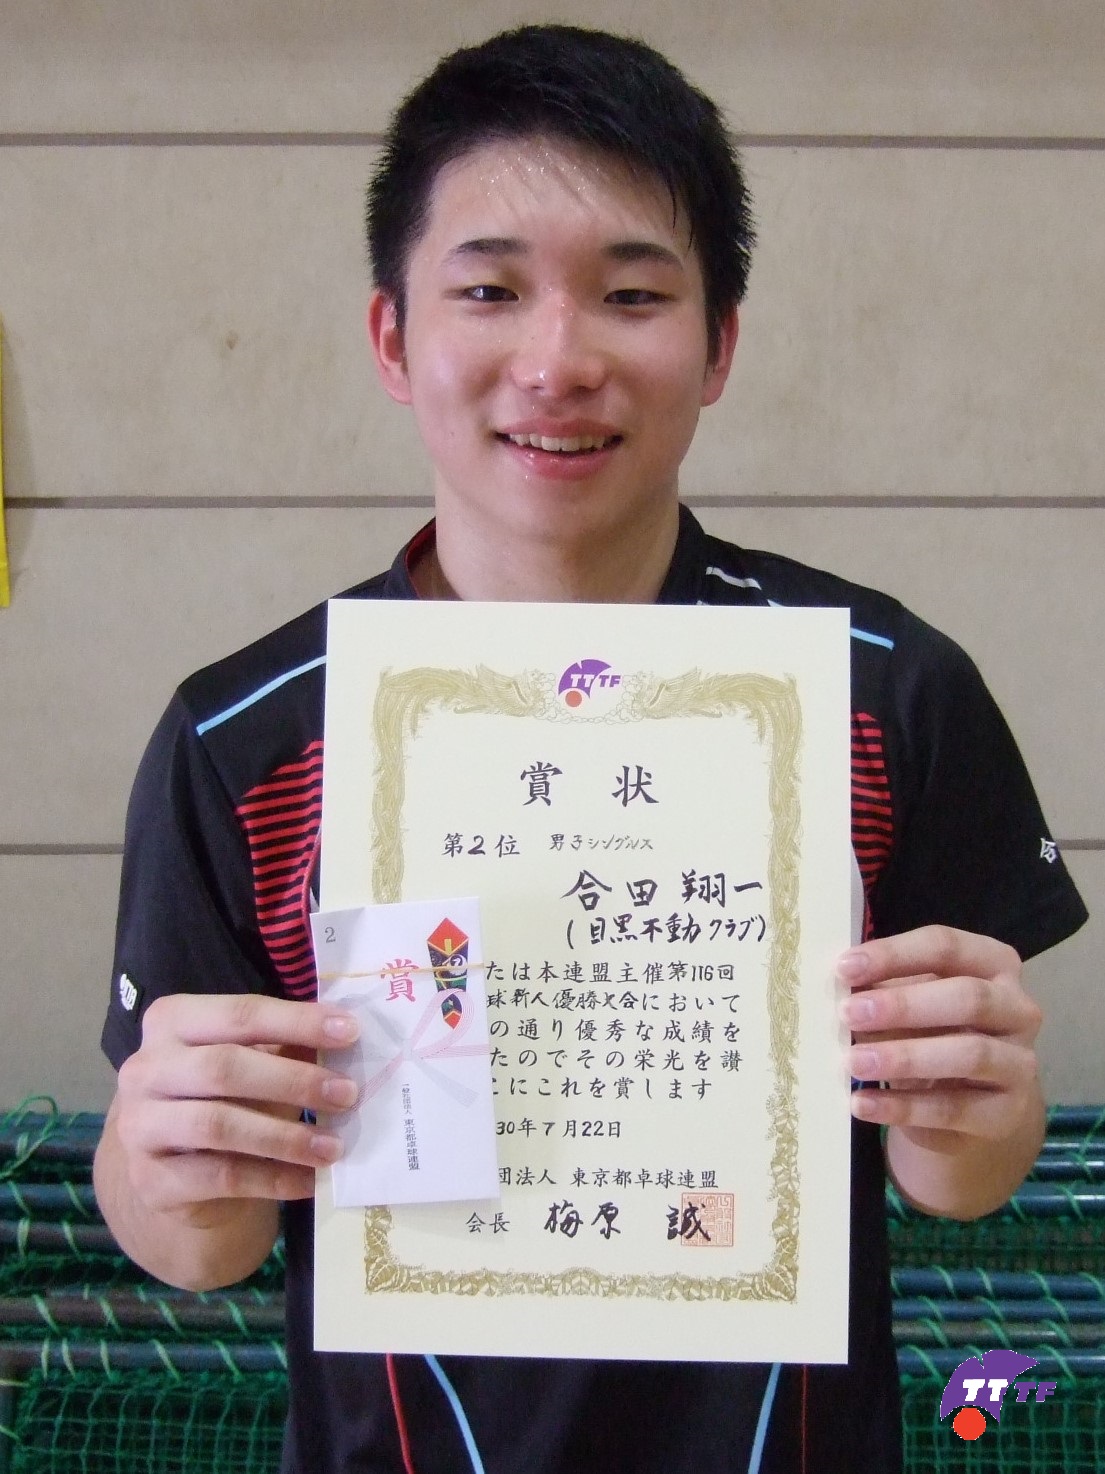 TTTF
賞 状
第2位 男子シングルス
合田 翔一
(目黒不動クラブ)
たは本連盟主催第116回
球新人優勝大会において
の通り優秀な成績を
たのでその栄光を讃
こにこれを賞します
30年7月22日
団法人 東京都卓球連盟
会長 梅原 誠
2
賞
一般社団法人 東京都卓球連盟
合
TTTF